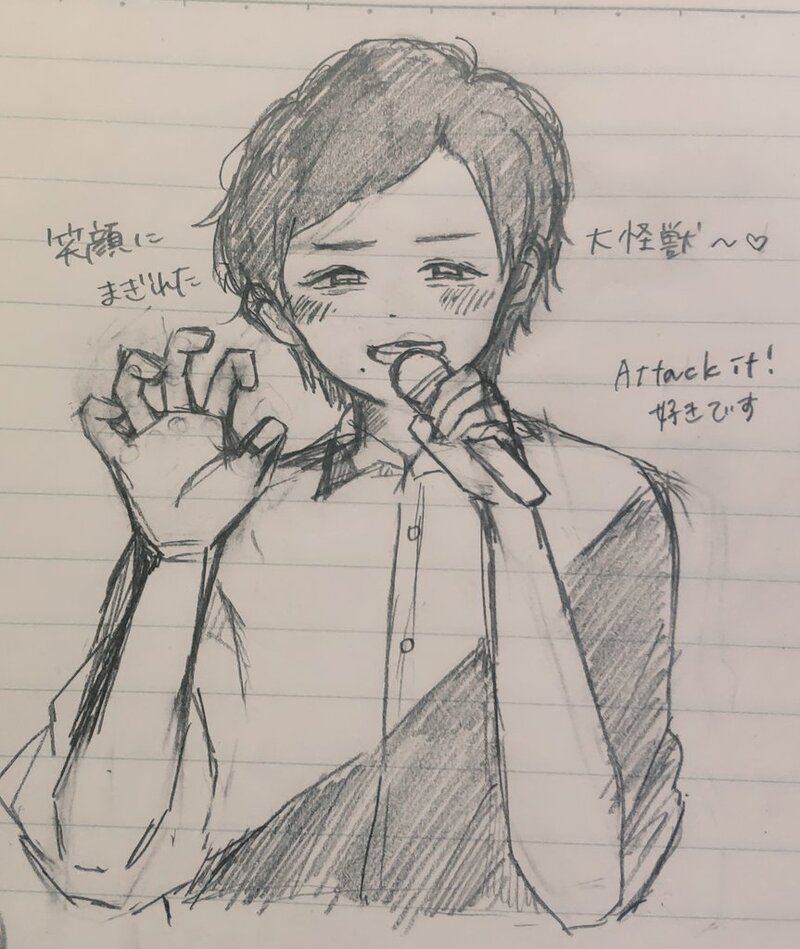 笑顔に
まぎれた
大怪獣～♡
Attack it!
好きです